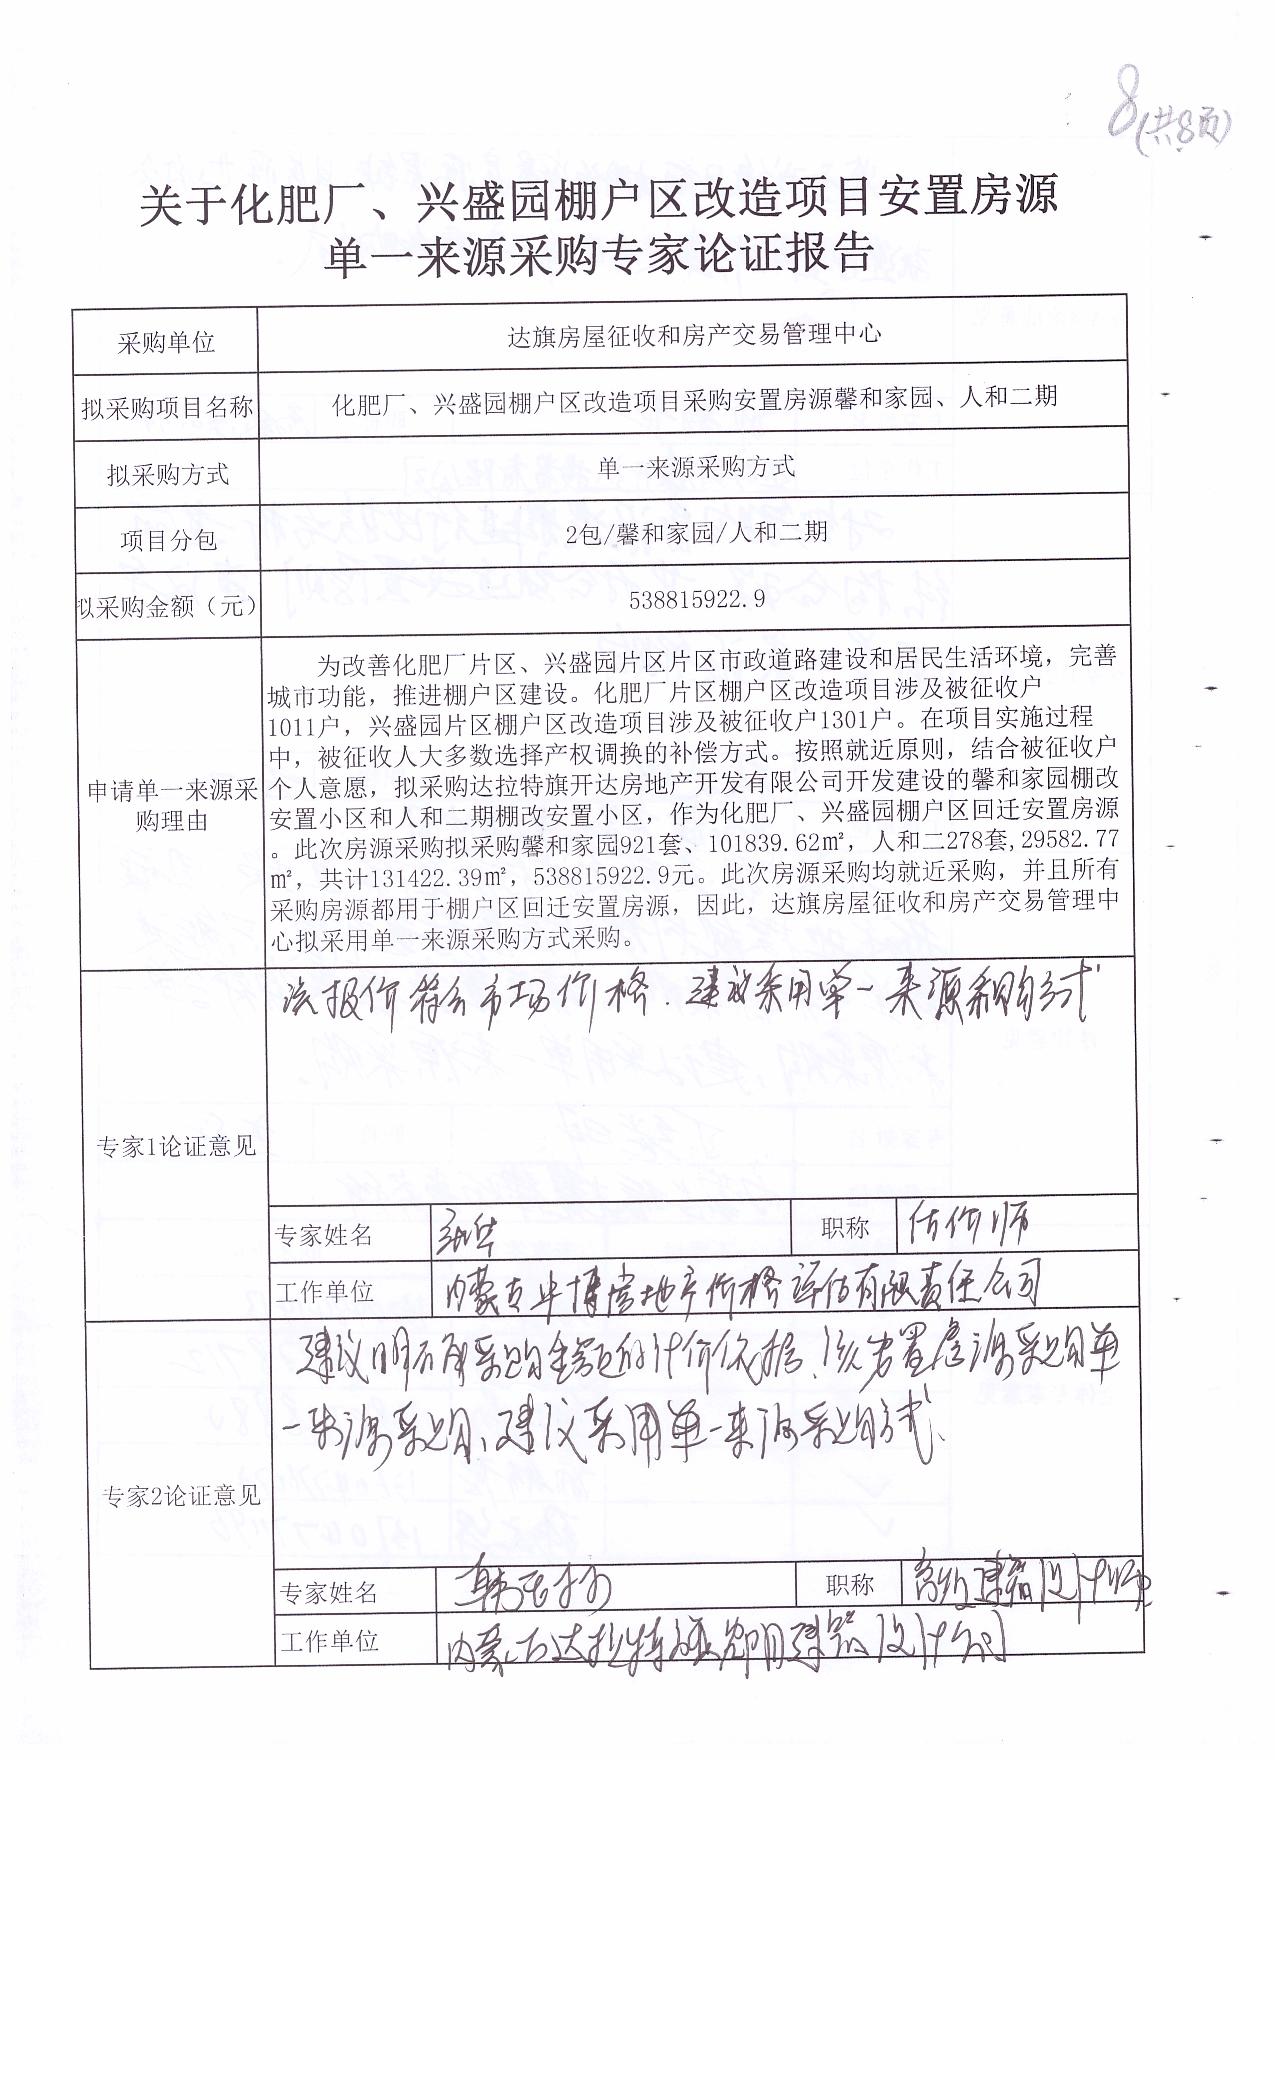 8(共8页)
关于化肥厂、兴盛园棚户区改造项目安置房源
单一来源采购专家论证报告
采购单位 达旗房屋征收和房产交易管理中心
拟采购项目名称 化肥厂、兴盛园棚户区改造项目采购安置房源馨和家园、人和二期
拟采购方式 单一来源采购方式
项目分包 2包/馨和家园/人和二期
拟采购金额（元） 538815922.9
申请单一来源采
购理由
为改善化肥厂片区、兴盛园片区片区市政道路建设和居民生活环境，完善
城市功能，推进棚户区建设。化肥厂片区棚户区改造项目涉及被征收户
1011户，兴盛园片区棚户区改造项目涉及被征收户1301户。在项目实施过程
中，被征收人大多数选择产权调换的补偿方式。按照就近原则，结合被征收户
个人意愿，拟采购达拉特旗开达房地产开发有限公司开发建设的馨和家园棚改
安置小区和人和二期棚改安置小区，作为化肥厂、兴盛园棚户区回迁安置房源
。此次房源采购拟采购馨和家园921套、101839.62㎡，人和二278套,29582.77
㎡，共计131422.39㎡，538815922.9元。此次房源采购均就近采购，并且所有
采购房源都用于棚户区回迁安置房源，因此，达旗房屋征收和房产交易管理中
心拟采用单一来源采购方式采购。
专家1论证意见
该报价符合市场价格.建议采用单一来源采购方式
专家姓名 职称 估价师
工作单位 内蒙古华博房地产价格评估有限责任公司
专家2论证意见
建议明确采购金额的计价依据、该安置房源采购单
一来源采购、建议采用单一来源采购方式、
专家姓名 韩 职称 高级建筑设计师
工作单位 内蒙古达拉特旗 建筑设计公司